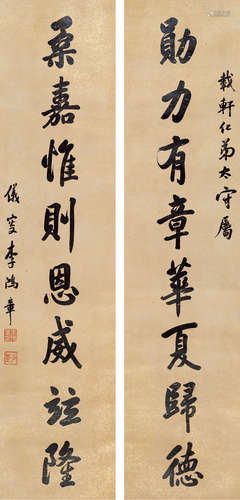 載軒仁弟太守屬
勛力有章華夏歸德
柔嘉惟則恩威竝隆
儀叟李鴻章